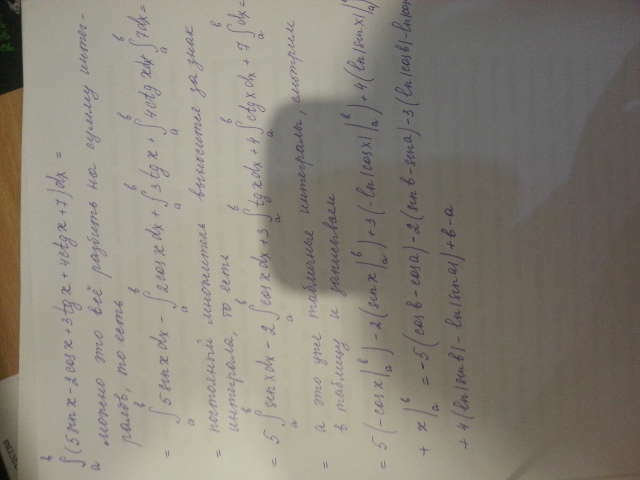 ∫ₐᵇ (5sinx - 2cosx + 3tgx + 4ctgx + 7)dx =
можно это всё разбить на сумму интег-
ралов, то есть
= ∫ₐᵇ 5sinxdx - ∫ₐᵇ 2cosxdx + ∫ₐᵇ 3tgx + ∫ₐᵇ 4ctgxdx + ∫ₐᵇ 7dx =
постоянный множитель выносится за знак
= интеграла, то есть
= 5∫ₐᵇ sinxdx - 2∫ₐᵇ cosxdx + 3∫ₐᵇ tgxdx + 4∫ₐᵇ ctgxdx + 7∫ₐᵇ dx =
а это уже табличные интегралы, смотрим
= в таблицу и записываем
= 5(-cosx|ₐᵇ) - 2(sinx|ₐᵇ) + 3(-ln|cosx||ₐᵇ) + 4(ln|sinx||ₐᵇ)
+ x|ₐᵇ = -5(cosb - cosa) - 2(sinb - sina) - 3(ln|cosb| - ln
+ 4(ln|sinb| - ln|sina|) + b - a